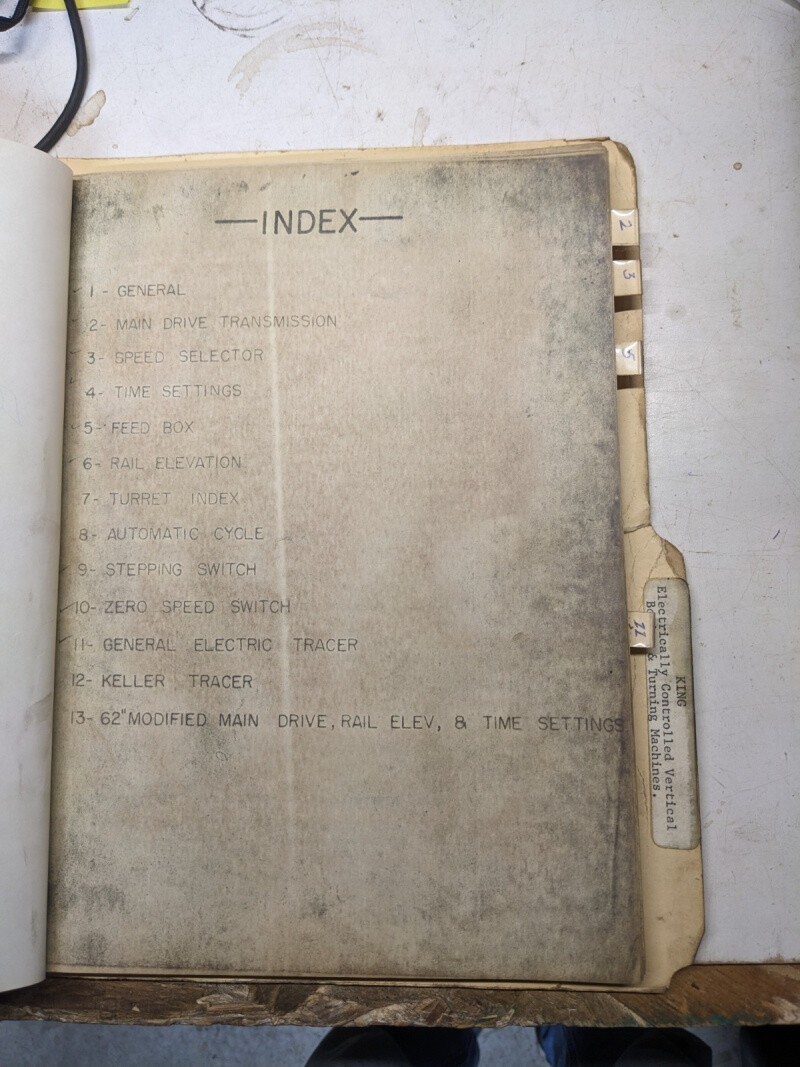 —INDEX—
1 - GENERAL
2- MAIN DRIVE TRANSMISSION
3- SPEED SELECTOR
4- TIME SETTINGS
5- FEED BOX
6- RAIL ELEVATION
7- TURRET INDEX
8- AUTOMATIC CYCLE
9- STEPPING SWITCH
10- ZERO SPEED SWITCH
11- GENERAL ELECTRIC TRACER
12- KELLER TRACER
13- 62" MODIFIED MAIN DRIVE, RAIL ELEV, & TIME SETTINGS
2
3
5
11
KING
Electrically Controlled Vertical
& Turning Machines.